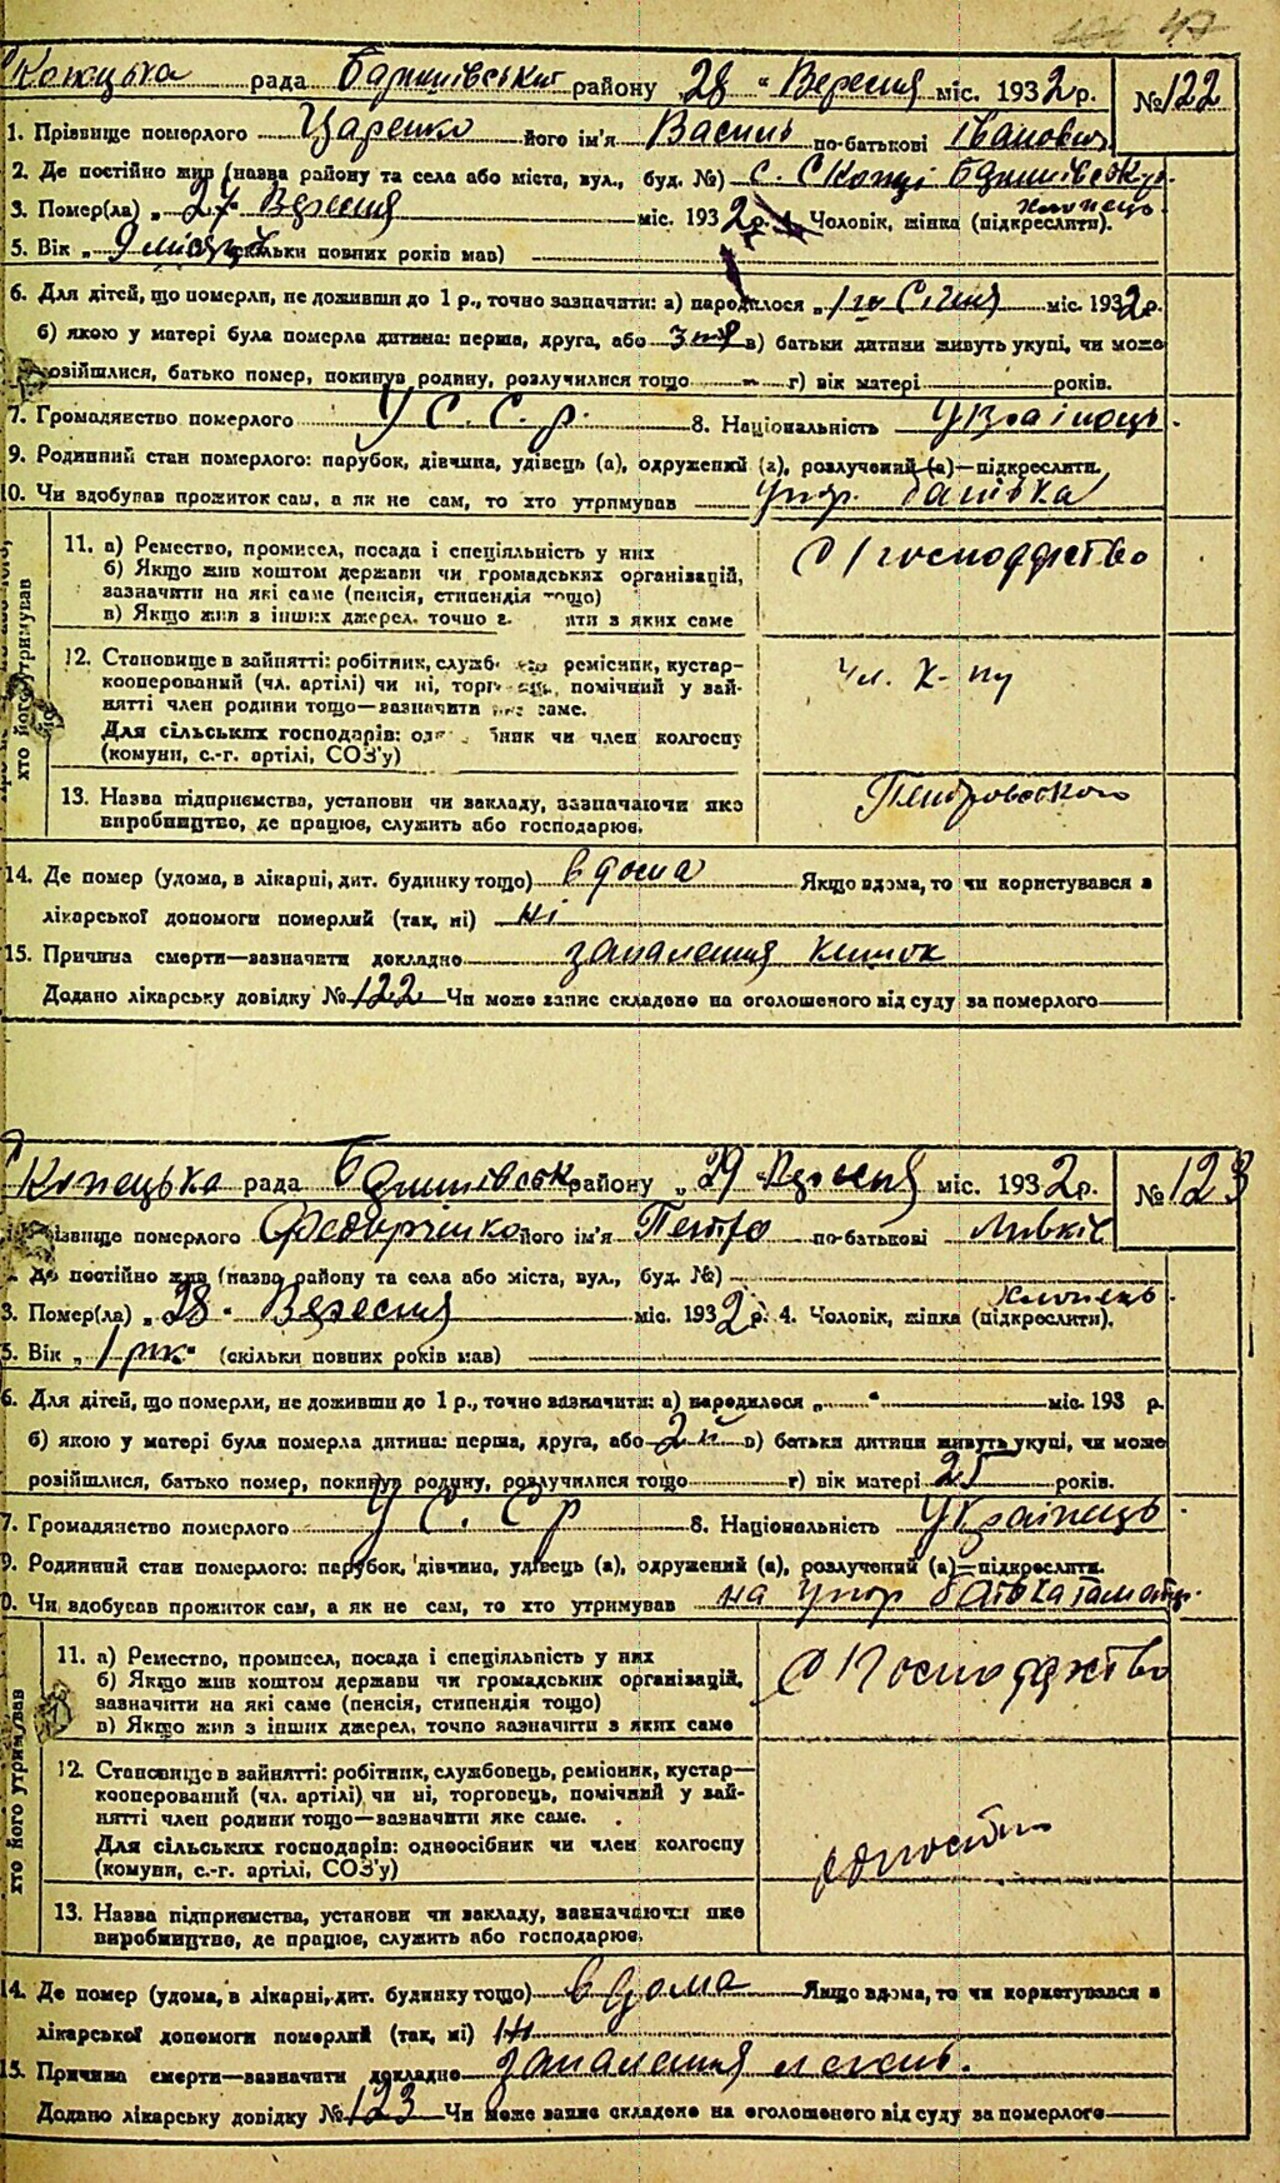 47
Копецька рада Баришівськ району „28" Вересня міс. 1932 р. № 122
1. Прізвище померлого Царенко його ім'я Василь по-батькові Іванович
2. Де постійно жив (назва району та села або міста, вул., буд. №) с. Скопці Баришівськ р.
хлопець
3. Помер(ла) „27" Вересня міс. 1932 р. 4. Чоловік, жінка (підкреслити).
5. Вік „9 місяців (скільки повних років мав)
6. Для дітей, що померли, не доживши до 1 р., точно зазначити: а) народилося „1го Січня міс. 1932 р.
б) якою у матері була померла дитина: перша, друга, або 3тя в) батьки дитини живуть укупі, чи може
розійшлися, батько помер, покинув родину, розлучилися тощо г) вік матері років.
7. Громадянство померлого У С. С. р. 8. Національність Українець
9. Родинний стан померлого: парубок, дівчина, удівець (а), одружений (а), розлучений (а)—підкреслити.
10. Чи вдобував прожиток сам, а як не сам, то хто утримував утр. батька
хто його утримував
11. а) Ремество, промисел, посада і спеціяльність у них
б) Якщо жив коштом держави чи громадських організацій,
зазначити на які саме (пенсія, стипендія тощо)
в) Якщо жив з інших джерел, точно з яких саме
С/господарство
12. Становище в зайнятті: робітник, служб ремісник, кустар—
кооперований (чл. артілі) чи ні, торг помічний у зай-
нятті член родини тощо—зазначити яке саме.
Для сільських господарів: од ник чи член колгоспу
(комуни, с.-г. артілі, СОЗ'у)
чл. к-пу
13. Назва підприємства, установи чи закладу, зазначаючи яке
виробництво, де працює, служить або господарює.
Петровського
14. Де помер (удома, в лікарні, дит. будинку тощо) вдома Якщо вдома, то чи користувався з
лікарської допомоги померлий (так, ні) ні
15. Причина смерти—зазначити докладно запалення кишок
Додано лікарську довідку № 122 Чи може запис складено на оголошеного від суду за померлого
Копецька рада Баришівськ району „29 Вересня міс. 1932 р. № 123
Прізвище померлого Федорченко його ім'я Петро по-батькові
2. Де постійно жив (назва району та села або міста, вул., буд. №)
хлопець
3. Помер(ла) „28" Вересня міс. 1932 р. 4. Чоловік, жінка (підкреслити).
5. Вік „1 рік" (скільки повних років мав)
6. Для дітей, що померли, не доживши до 1 р., точно зазначити: а) народилося „ " міс. 193 р.
б) якою у матері була померла дитина: перша, друга, або 2й в) батьки дитини живуть укупі, чи може
розійшлися, батько помер, покинув родину, розлучилися тощо г) вік матері 25 років.
7. Громадянство померлого У С. С р 8. Національність Українець
9. Родинний стан померлого: парубок, дівчина, удівець (а), одружений (а), розлучений (а)—підкреслити.
0. Чи вдобував прожиток сам, а як не сам, то хто утримував на утр батька та матір.
хто його утримував
11. а) Ремество, промисел, посада і спеціяльність у них
б) Якщо жив коштом держави чи громадських організацій,
зазначити на які саме (пенсія, стипендія тощо)
в) Якщо жив з інших джерел, точно зазначити з яких саме
С/господарство
12. Становище в зайнятті: робітник, службовець, ремісник, кустар—
кооперований (чл. артілі) чи ні, торговець, помічний у зай-
нятті член родини тощо—зазначити яке саме.
Для сільських господарів: одноосібник чи член колгоспу
(комуни, с.-г. артілі, СОЗ'у)
13. Назва підприємства, установи чи закладу, зазначаючи яке
виробництво, де працює, служить або господарює.
14. Де помер (удома, в лікарні, дит. будинку тощо) вдома Якщо вдома, то чи користувався з
лікарської допомоги померлий (так, ні) ні
15. Причина смерти—зазначити докладно запалення легень.
Додано лікарську довідку № 123 Чи може запис складено на оголошеного від суду за померлого